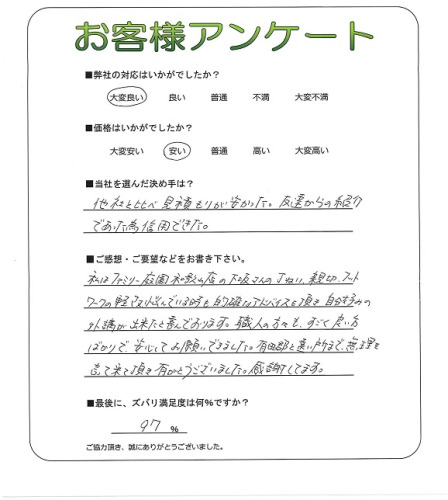 お客様アンケート
■弊社の対応はいかがでしたか？
大変良い 良い 普通 不満 大変不満
■価格はいかがでしたか？
大変安い 安い 普通 高い 大変高い
■当社を選んだ決め手は？
他社と比べ見積もりが安かった。友達からの紹介
であった為信用できた。
■ご感想・ご要望などをお書き下さい。
私はファミリー庭園和歌山店の下坂さんのていねい、親切、フット
ワークの軽さ、的確なアドバイスを頂き自分好みの
外構が出来たと喜んでおります。職人の方々も、すごく良い方
ばかりで安心してお願いできました。有田郡と遠い所まで、無理を
言って来て頂き有がとうございました。感謝してます。
■最後に、ズバリ満足度は何%ですか？
97 %
ご協力頂き、誠にありがとうございました。